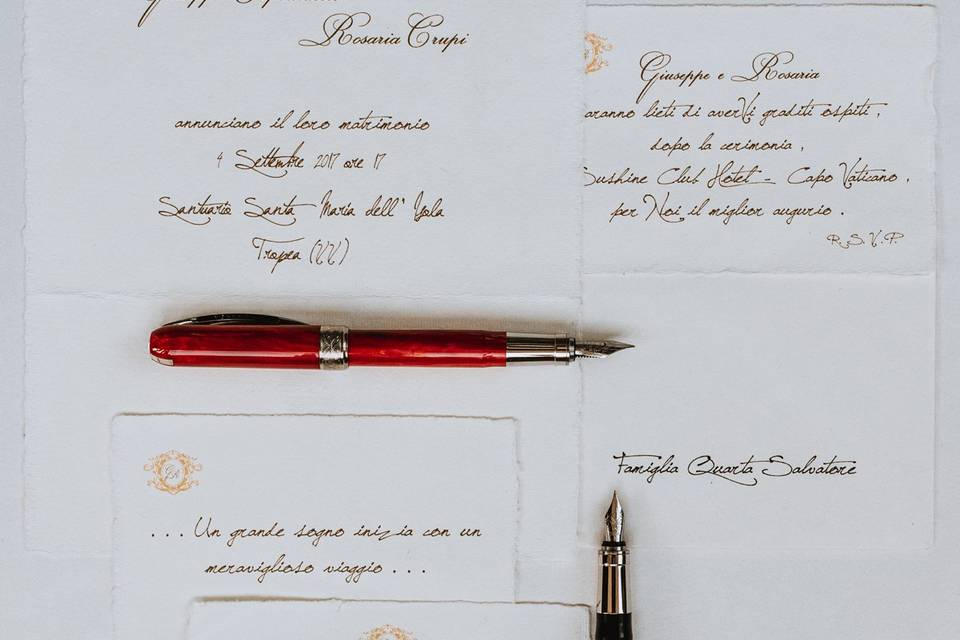 Rosaria Crupi
annunciano il loro matrimonio
4 Settembre 2017 ore 17
Santuario Santa Maria dell' Isola
Tropea (VV)
Giuseppe e Rosaria
aranno lieti di averVi graditi ospiti,
dopo la cerimonia,
Sushine Club Hotel - Capo Vaticano,
per Noi il miglior augurio.
R.S.V.P.
Famiglia Quarta Salvatore
... Un grande sogno inizia con un
meraviglioso viaggio ...